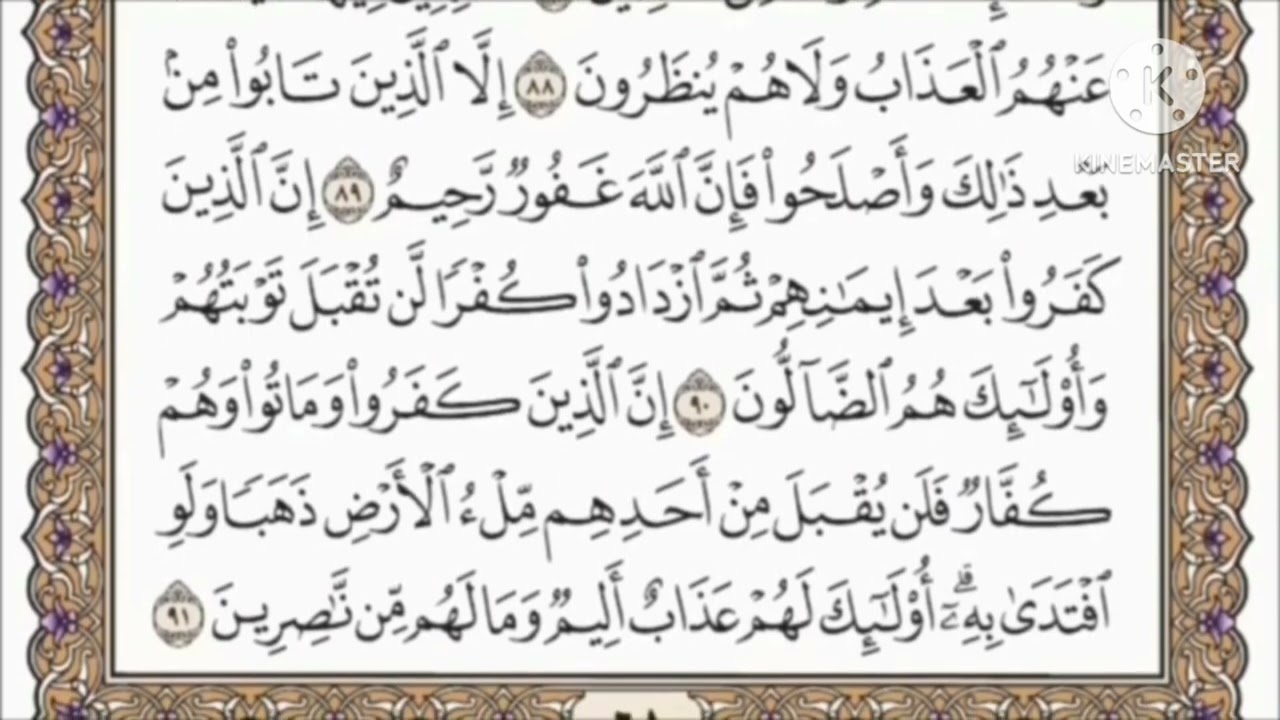 عَنْهُمُ ٱلْعَذَابُ وَلَا هُمْ يُنظَرُونَ ٨٨ إِلَّا ٱلَّذِينَ تَابُوا۟ مِنۢ
بَعْدِ ذَٰلِكَ وَأَصْلَحُوا۟ فَإِنَّ ٱللَّهَ غَفُورٌ رَّحِيمٌ ٨٩ إِنَّ ٱلَّذِينَ
كَفَرُوا۟ بَعْدَ إِيمَـٰنِهِمْ ثُمَّ ٱزْدَادُوا۟ كُفْرًا لَّن تُقْبَلَ تَوْبَتُهُمْ
وَأُو۟لَـٰٓئِكَ هُمُ ٱلضَّآلُّونَ ٩٠ إِنَّ ٱلَّذِينَ كَفَرُوا۟ وَمَاتُوا۟ وَهُمْ
كُفَّارٌ فَلَن يُقْبَلَ مِنْ أَحَدِهِم مِّلْءُ ٱلْأَرْضِ ذَهَبًا وَلَوِ
ٱفْتَدَىٰ بِهِۦٓ ۗ أُو۟لَـٰٓئِكَ لَهُمْ عَذَابٌ أَلِيمٌ وَمَا لَهُم مِّن نَّـٰصِرِينَ ٩١
K
KINEMASTER